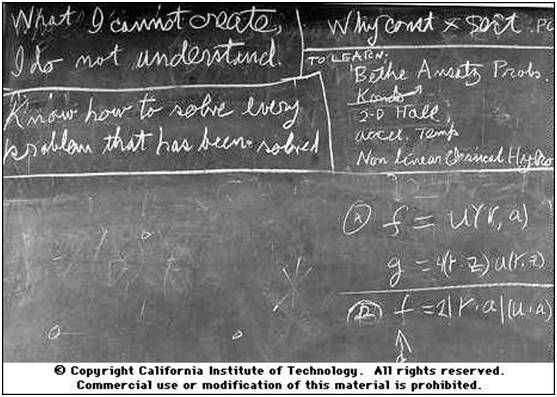 What I cannot create,
I do not understand.
Know how to solve every
problem that has been solved
Why const × sort . PO
TO LEARN:
Bethe Ansatz Probs.
Kondo
2-D Hall
accel. Temp
Non linear Classical Hydro
(A) f = u(r, a)
g = 4(r·z) u(r, z)
(B) f = 2|r·a|(u·a)
© Copyright California Institute of Technology. All rights reserved.
Commercial use or modification of this material is prohibited.